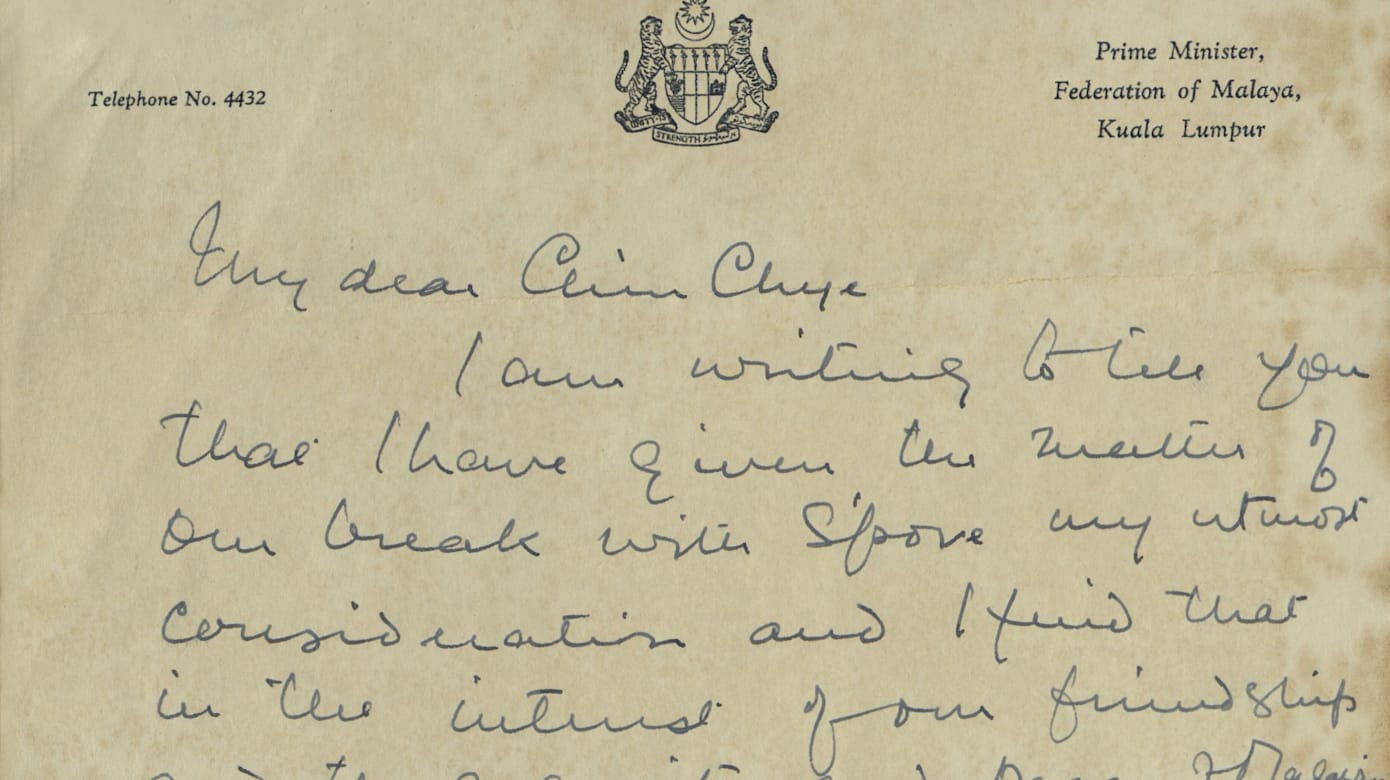 Telephone No. 4432
UNITY IS STRENGTH
Prime Minister,
Federation of Malaya,
Kuala Lumpur
My dear Chin Chye
I am writing to tell you
that I have given the matter of
our break with S'pore my utmost
consideration and I find that
in the interest of our friendship
and the security and peace of Malaysia